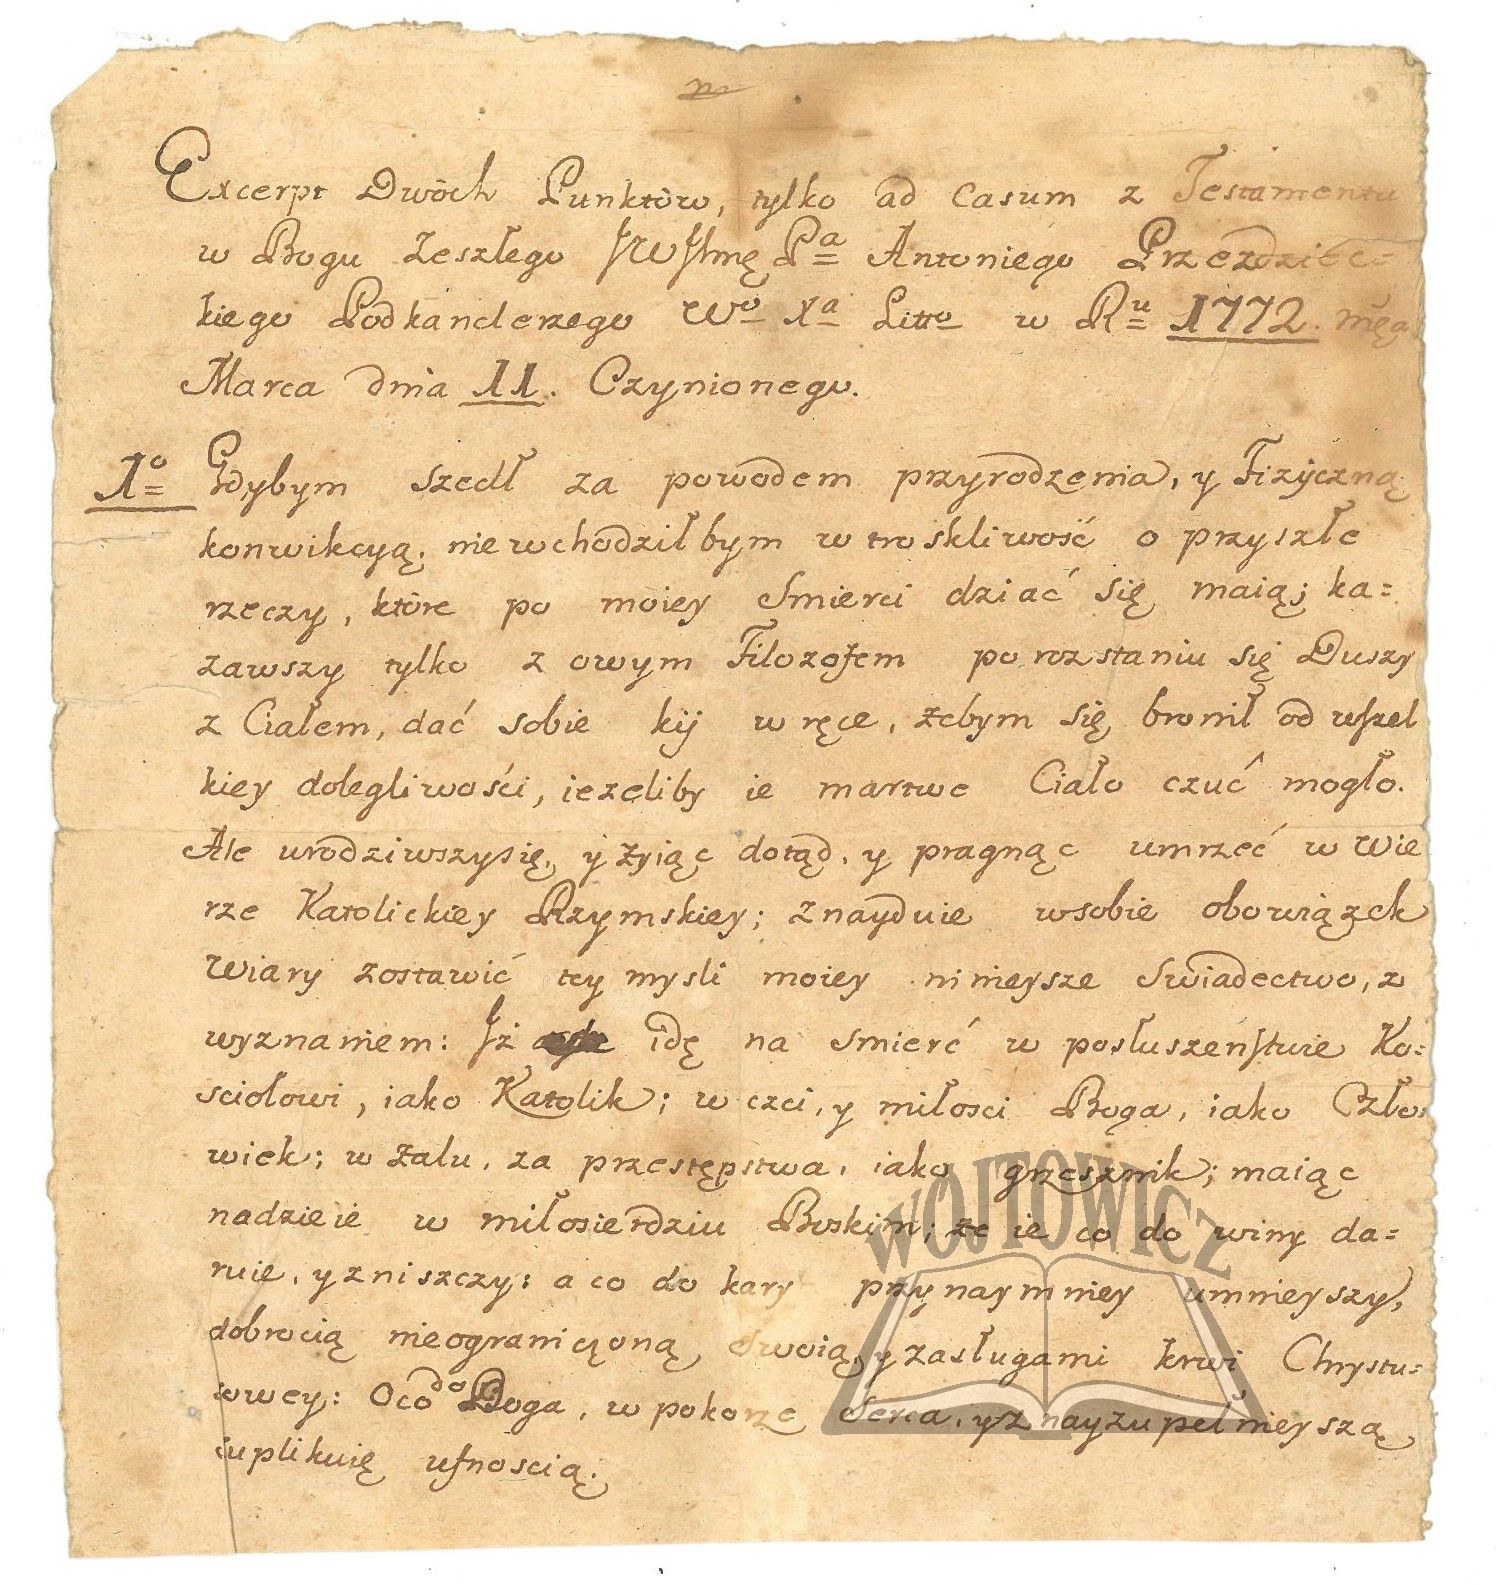 Excerpt Dwóch Punktów, tylko ad Casum z Testamentu
w Bogu Zeszłego JWJmę Pa Antoniego Przezdziec
kiego Podkanclerzego Wo Xa Litto w Ru 1772. męa
Marca dnia 11. Czynionego.
1o Gdybym szedł za powodem przyrodzenia, y Fizyczną
konwikcyą; niewchodziłbym w troskliwość o przyszłe
rzeczy, które po moiey Smierci dziać się maią; ka=
zawszy tylko z owym Filozofem po rozstaniu się Duszy
z Ciałem, dać sobie kij w ręce, żebym się bronił od wszel
kiey dolegliwości, ieżeliby ie martwe Ciało czuć mogło.
Ale urodziwszysię, y żyiąc dotąd, y pragnąc umrzeć w Wie
rze Katolickiey Rzymskiey; znayduie wsobie obowiązek
Wiary zostawić tey mysli moiey ninieysze Swiadectwo, z
wyznaniem: Jż idę na smierć w posłuszeństwie Ko=
sciołowi, iako Katolik; w czci, y miłosci Boga, iako Czło=
wiek; w żalu, za przestępstwa, iako grzesznik; maiąc
nadzieie w miłosierdziu Boskim; że ie co do winy da=
ruie, y zniszczy: a co do kary przynaymniey umnieyszy,
dobrocią nieograniczoną, Swoią, y zasługami krwi Chrystu=
sowey: Oco do Boga, w pokorze Serca, y z nayzupełnieyszą
suplikuię ufnoscią.
WÓJTOWICZ